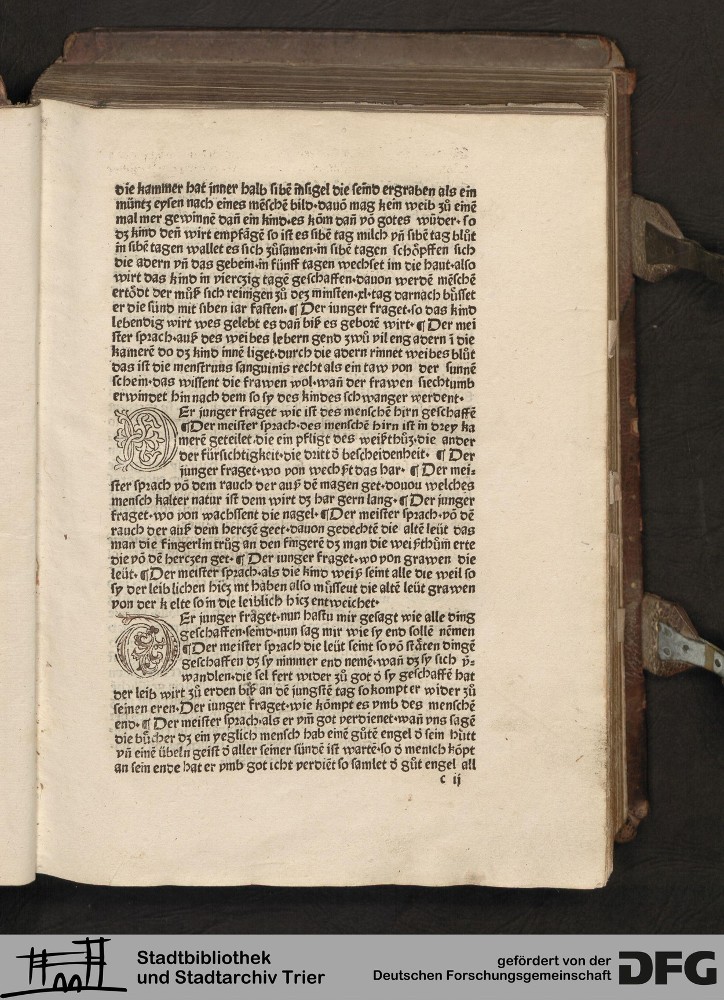 die kammer hat jnner halb sibē īnsigel die seind ergraben als ein
müntz eysen nach eines mēschē bild·dauō mag kein weib zů einē
mal mer gewinnē dañ ein kind·es kōm dañ vō gotes wūder·so
dz kind deñ wirt empfāgē so ist es sibē tag milch vñ sibē tag blůt
in sibē tagen wallet es sich zůsamen·in sibē tagen schöpffen sich
die adern vñ das gebein·in fünff tagen wechset im die haut·also
wirt das kind in vierczig tagē geschaffen·dauon werdē mēschē
ertödt der můß sich reinigen zů dez minsten·xl·tag darnach bůsset
er die sünd mit siben iar fasten·¶ Der iunger fraget·so das kind
lebendig wirt wes gelebt es dañ biß es geborē wirt·¶ Der mei
ster sprach·auß des weibes lebern gend zwů vil eng adern ī die
kamerē do dz kind innē liget·durch die adern rinnet weibes blůt
das ist die menstruns sanguinis recht als ein taw von der sunnē
schein·das wissent die frawen wol·wañ der frawen siechtumb
erwindet hin nach dem so sy des kindes schwanger werdent·
DEr junger fraget wie ist des menschē hirn geschaffē
¶Der meister sprach·des menschē hirn ist in drey ka
merē geteilet·die ein pfligt des weißthůz·die ander
der fürsichtigkeit·die dritt ō bescheidenheit· ¶ Der
junger fraget·wo von wechßt das har· ¶ Der mei⸗
ster sprach vō dem rauch der auß dē magen get·douou welches
mensch kalter natur ist dem wirt dz har gern lang·¶ Der junger
fraget·wo von wachssent die nagel·¶Der meister sprach·vō dē
rauch der auß dem herczē geet·dauon gedechtē die altē leüt das
man die fingerlin trůg an den fingerē dz man die weißthům erte
die vō dē herczen get·¶ Der iunger fraget·wo von grawen die
leüt·¶Der meister sprach·als die kind weiß seint alle die weil so
sy der leiblichen hicz mt haben also můsseut die altē leüt grawen
von der kelte so in die leiblich hicz entweichet·
DEr junger fraget·nun hastu mir gesagt wie alle ding
geschaffen·seind·nun sag mir wie sy end sollē nēmen
¶Der meister sprach die leüt seint so vō stäten dingē
geschaffen dz sy nimmer end nemē·wañ dz sy sich v̄⸗
wandlen·die sel fert wider zů got ō sy geschaffē hat
der leib wirt zů erden biß an dē jungstē tag so kompt er wider zů
seinen eren·Der iunger fraget·wie kōmpt es vmb des menschē
end·¶ Der meister sprach·als er vm̄ got verdienet·wañ vns sagē
die bücher dz ein yeglich mensch hab einē gůtē engel ō sein hütt
vñ einē übeln geist ō aller seiner sündē ist wartē·so ō mensch kōpt
an sein ende hat er vmb got icht verdiēt so samlet ō gůt engel all
c ij
Stadtbibliothek
und Stadtarchiv Trier
gefördert von der
Deutschen Forschungsgemeinschaft
DFG